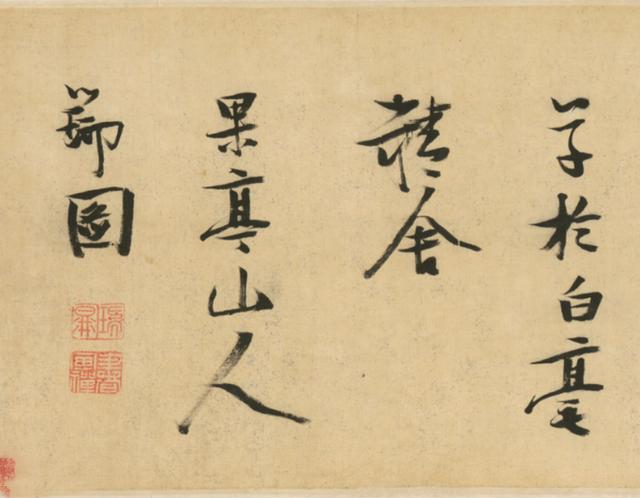 草於白毫
精舍
果亭山人
瑞圖